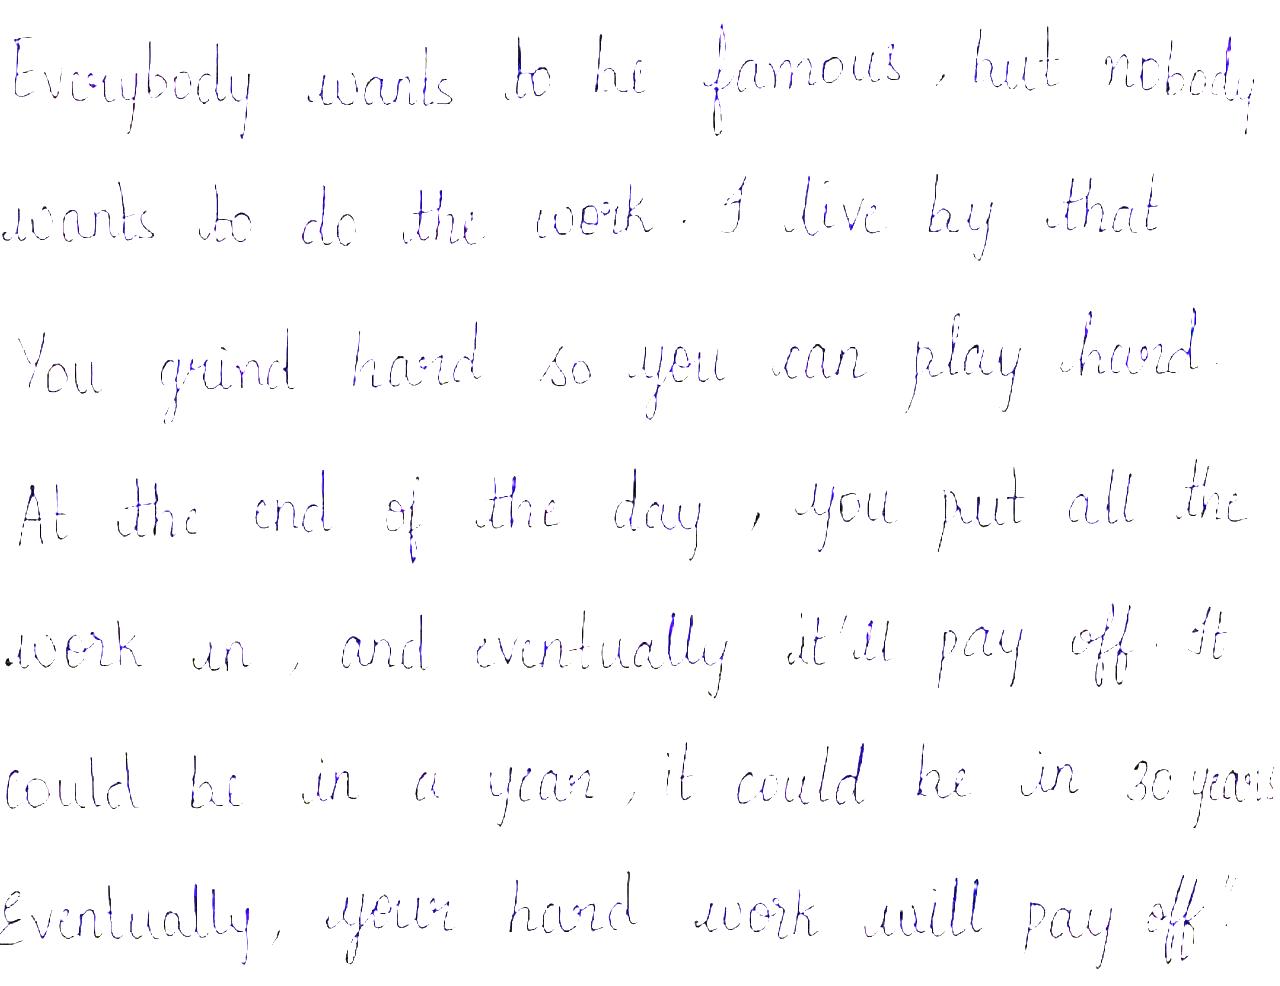 Everybody wants to be famous, but nobody
wants to do the work. I live by that
You grind hard so you can play hard.
At the end of the day, you put all the
work in, and eventually it'll pay off. It
could be in a year, it could be in 30 years
Eventually, your hard work will pay off".